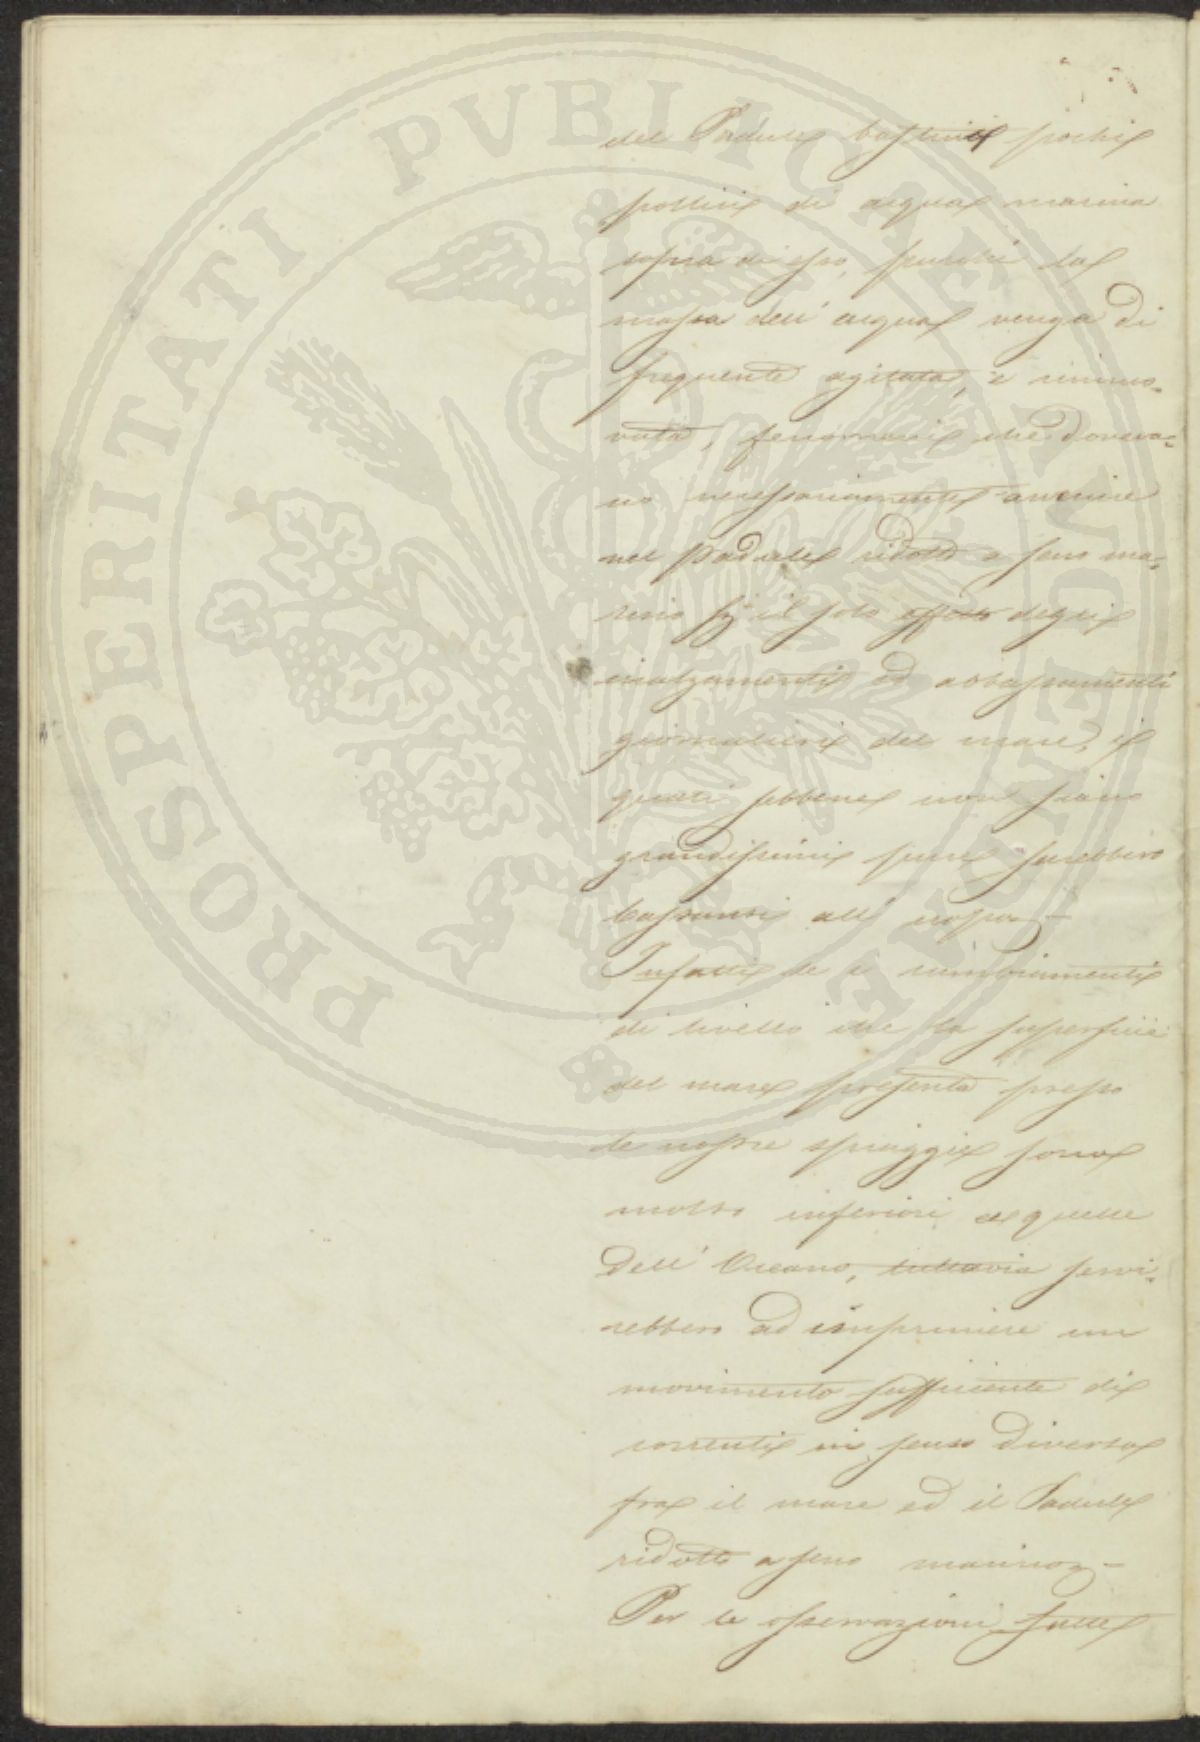 PROSPERITATI PVBLICAE AVGENDAE
del Padule bastino pochi
pollici di acqua marina
sopra di esso, purchè la
massa dell' acqua venga di
frequente agitata, e rinno-
vata, fenomeni che dovreva-
no necessariamente avvenire
nel Padule ridotto a seno ma-
rino p. il solo effetto degli
inalzamenti ed abbassamenti
giornalieri del mare, i
quali sebbene non siano
grandissimi pure sarebbero
bastanti all' uopo -
Infatti se i cambiamenti
di livello che la superficie
del mare presenta presso
le nostre spiaggie sono
molto inferiori a quelle
dell' Oceano, tuttavia servi-
rebbero ad imprimere un
movimento sufficiente di
correnti in senso diverso
fra il mare ed il Padule
ridotto a seno marino -
Per le osservazioni fatte